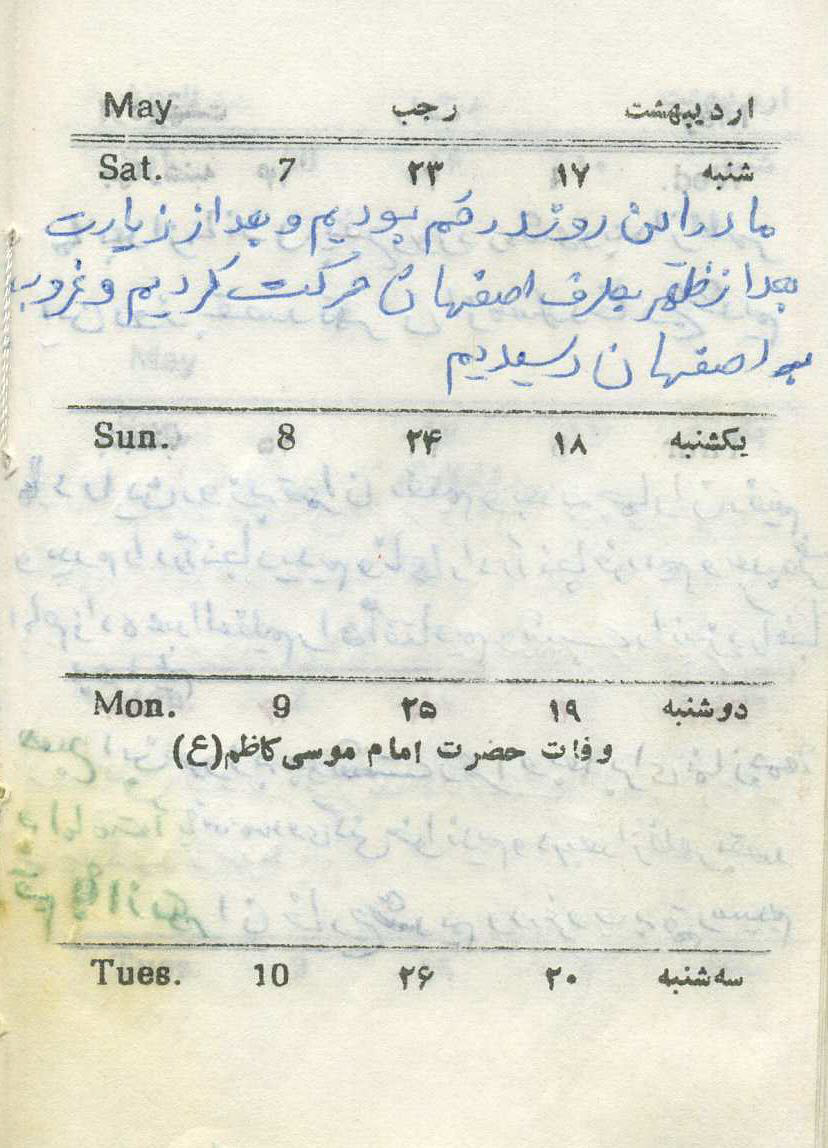 اردیبهشت رجب May
شنبه ۱۷ ۲۳ 7 Sat.
ما در این روز در قم بودیم و بعد از زیارت
بعد از ظهر بطرف اصفهان حرکت کردیم و غروب
به اصفهان رسیدیم
یکشنبه ۱۸ ۲۴ 8 Sun.
دوشنبه ۱۹ ۲۵ 9 Mon.
وفات حضرت امام موسی کاظم(ع)
سه شنبه ۲۰ ۲۶ 10 Tues.